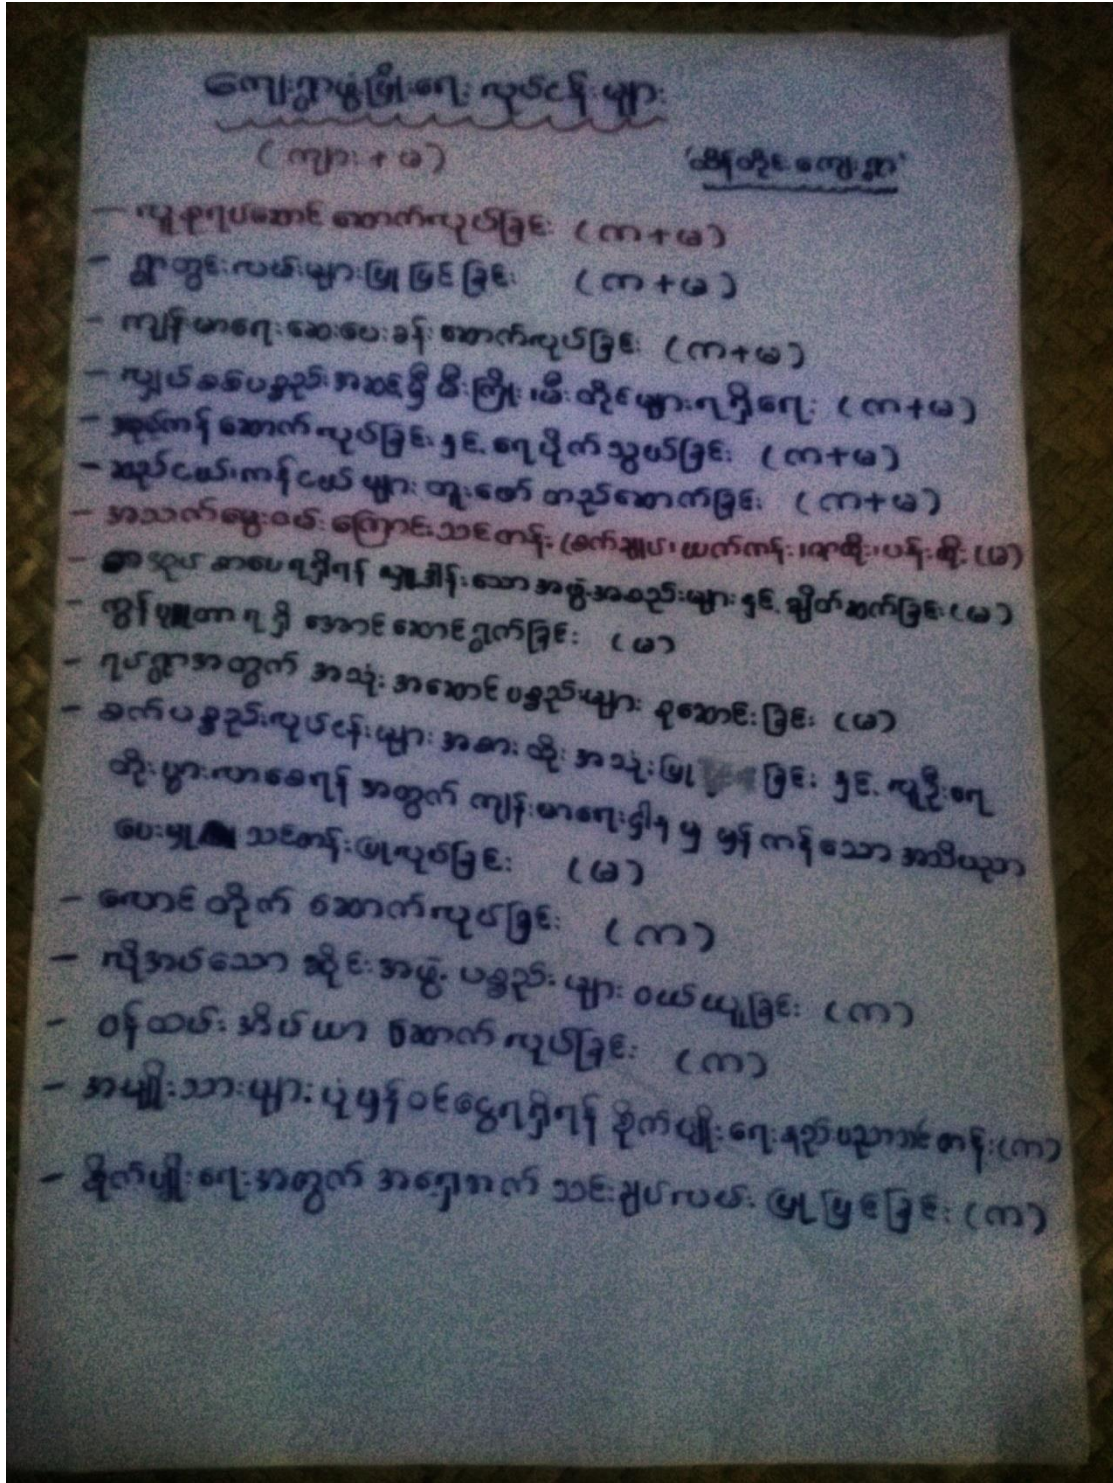 ကျေးရွာဖွံ့ဖြိုးရေး လုပ်ငန်းများ
(ကျား + မ)
"ထိန်တိုင်ကျေးရွာ"
- လူစုရပ်ဆောင် ဆောက်လုပ်ခြင်း (က+မ)
- ရွာတွင်းလမ်းများပြုပြင်ခြင်း (က+မ)
- ကျန်းမာရေးဆေးပေးခန်း ဆောက်လုပ်ခြင်း (က+မ)
- လျှပ်စစ်ပစ္စည်းအဆင့်ရှိ မီးကြိုး၊ မီးတိုင်များရရှိရေး (က+မ)
- အုတ်ကန် ဆောက်လုပ်ခြင်းနှင့် ရေပိုက်သွယ်ခြင်း (က+မ)
- ဆည်ငယ်၊ကန်ငယ်များ တူးဖော် တည်ဆောက်ခြင်း (က+မ)
- အသက်မွေးဝမ်းကြောင်းသင်တန်း (စက်ချုပ်၊ ယက်ကန်း၊ ဇာထိုး၊ပန်းထိုး (မ)
- စာအုပ် စာပေရရှိရန် လှူဒါန်းသောအဖွဲ့အစည်းများနှင့် ချိတ်ဆက်ခြင်း (မ)
- ကွန်ပျူတာရရှိ အောင်ဆောင်ရွက်ခြင်း (မ)
- ရပ်ရွာအတွက် အသုံးအဆောင်ပစ္စည်းများ စုဆောင်းခြင်း (မ)
- စက်ပစ္စည်းလုပ်ငန်းများ အစားထိုး အသုံးပြု ခြင်း နှင့် လူဦးရေ
တိုးပွားလာစေရန် အတွက် ကျန်းမာရေးဌါနမှ မှန်ကန်သော အသိပညာ
ပေးမှု သင်တန်းပြုလုပ်ခြင်း (မ)
- လောင်တိုက် ဆောက်လုပ်ခြင်း (က)
- လိုအပ်သော ဆိုင်းအဖွဲ့ ပစ္စည်းများ ဝယ်ယူခြင်း (က)
- ဝန်ထမ်းအိမ်ယာ ဆောက်လုပ်ခြင်း (က)
- အမျိုးသားများ ပုံမှန်ဝင်ငွေရရှိရန် စိုက်ပျိုးရေးနည်းပညာသင်တန်း (က)
- စိုက်ပျိုးရေးအတွက် အရှေ့ဘက် သင်းချုပ်လမ်း ပြုပြင်ခြင်း (က)